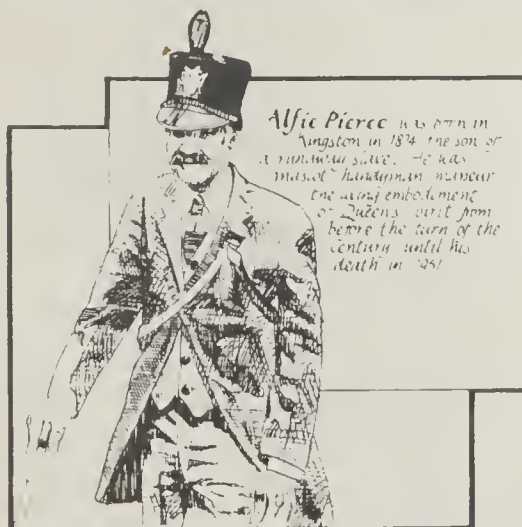 Alfie Pierce was born in
Kingston in 1874 the son of
a runaway slave. He was
mascot handyman masseur
the living embodiment
of Queens spirit from
before the turn of the
Century until his
death in 1951